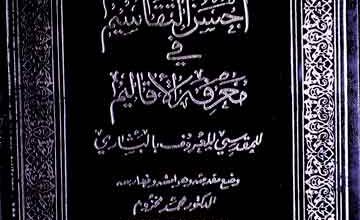 أحسن التقاسيم
في
معرفة الأقاليم
للمقدسي المعروف بالبشاري
وضع مقدمته وهوامشه وفهارسه
الدكتور محمد مخزوم